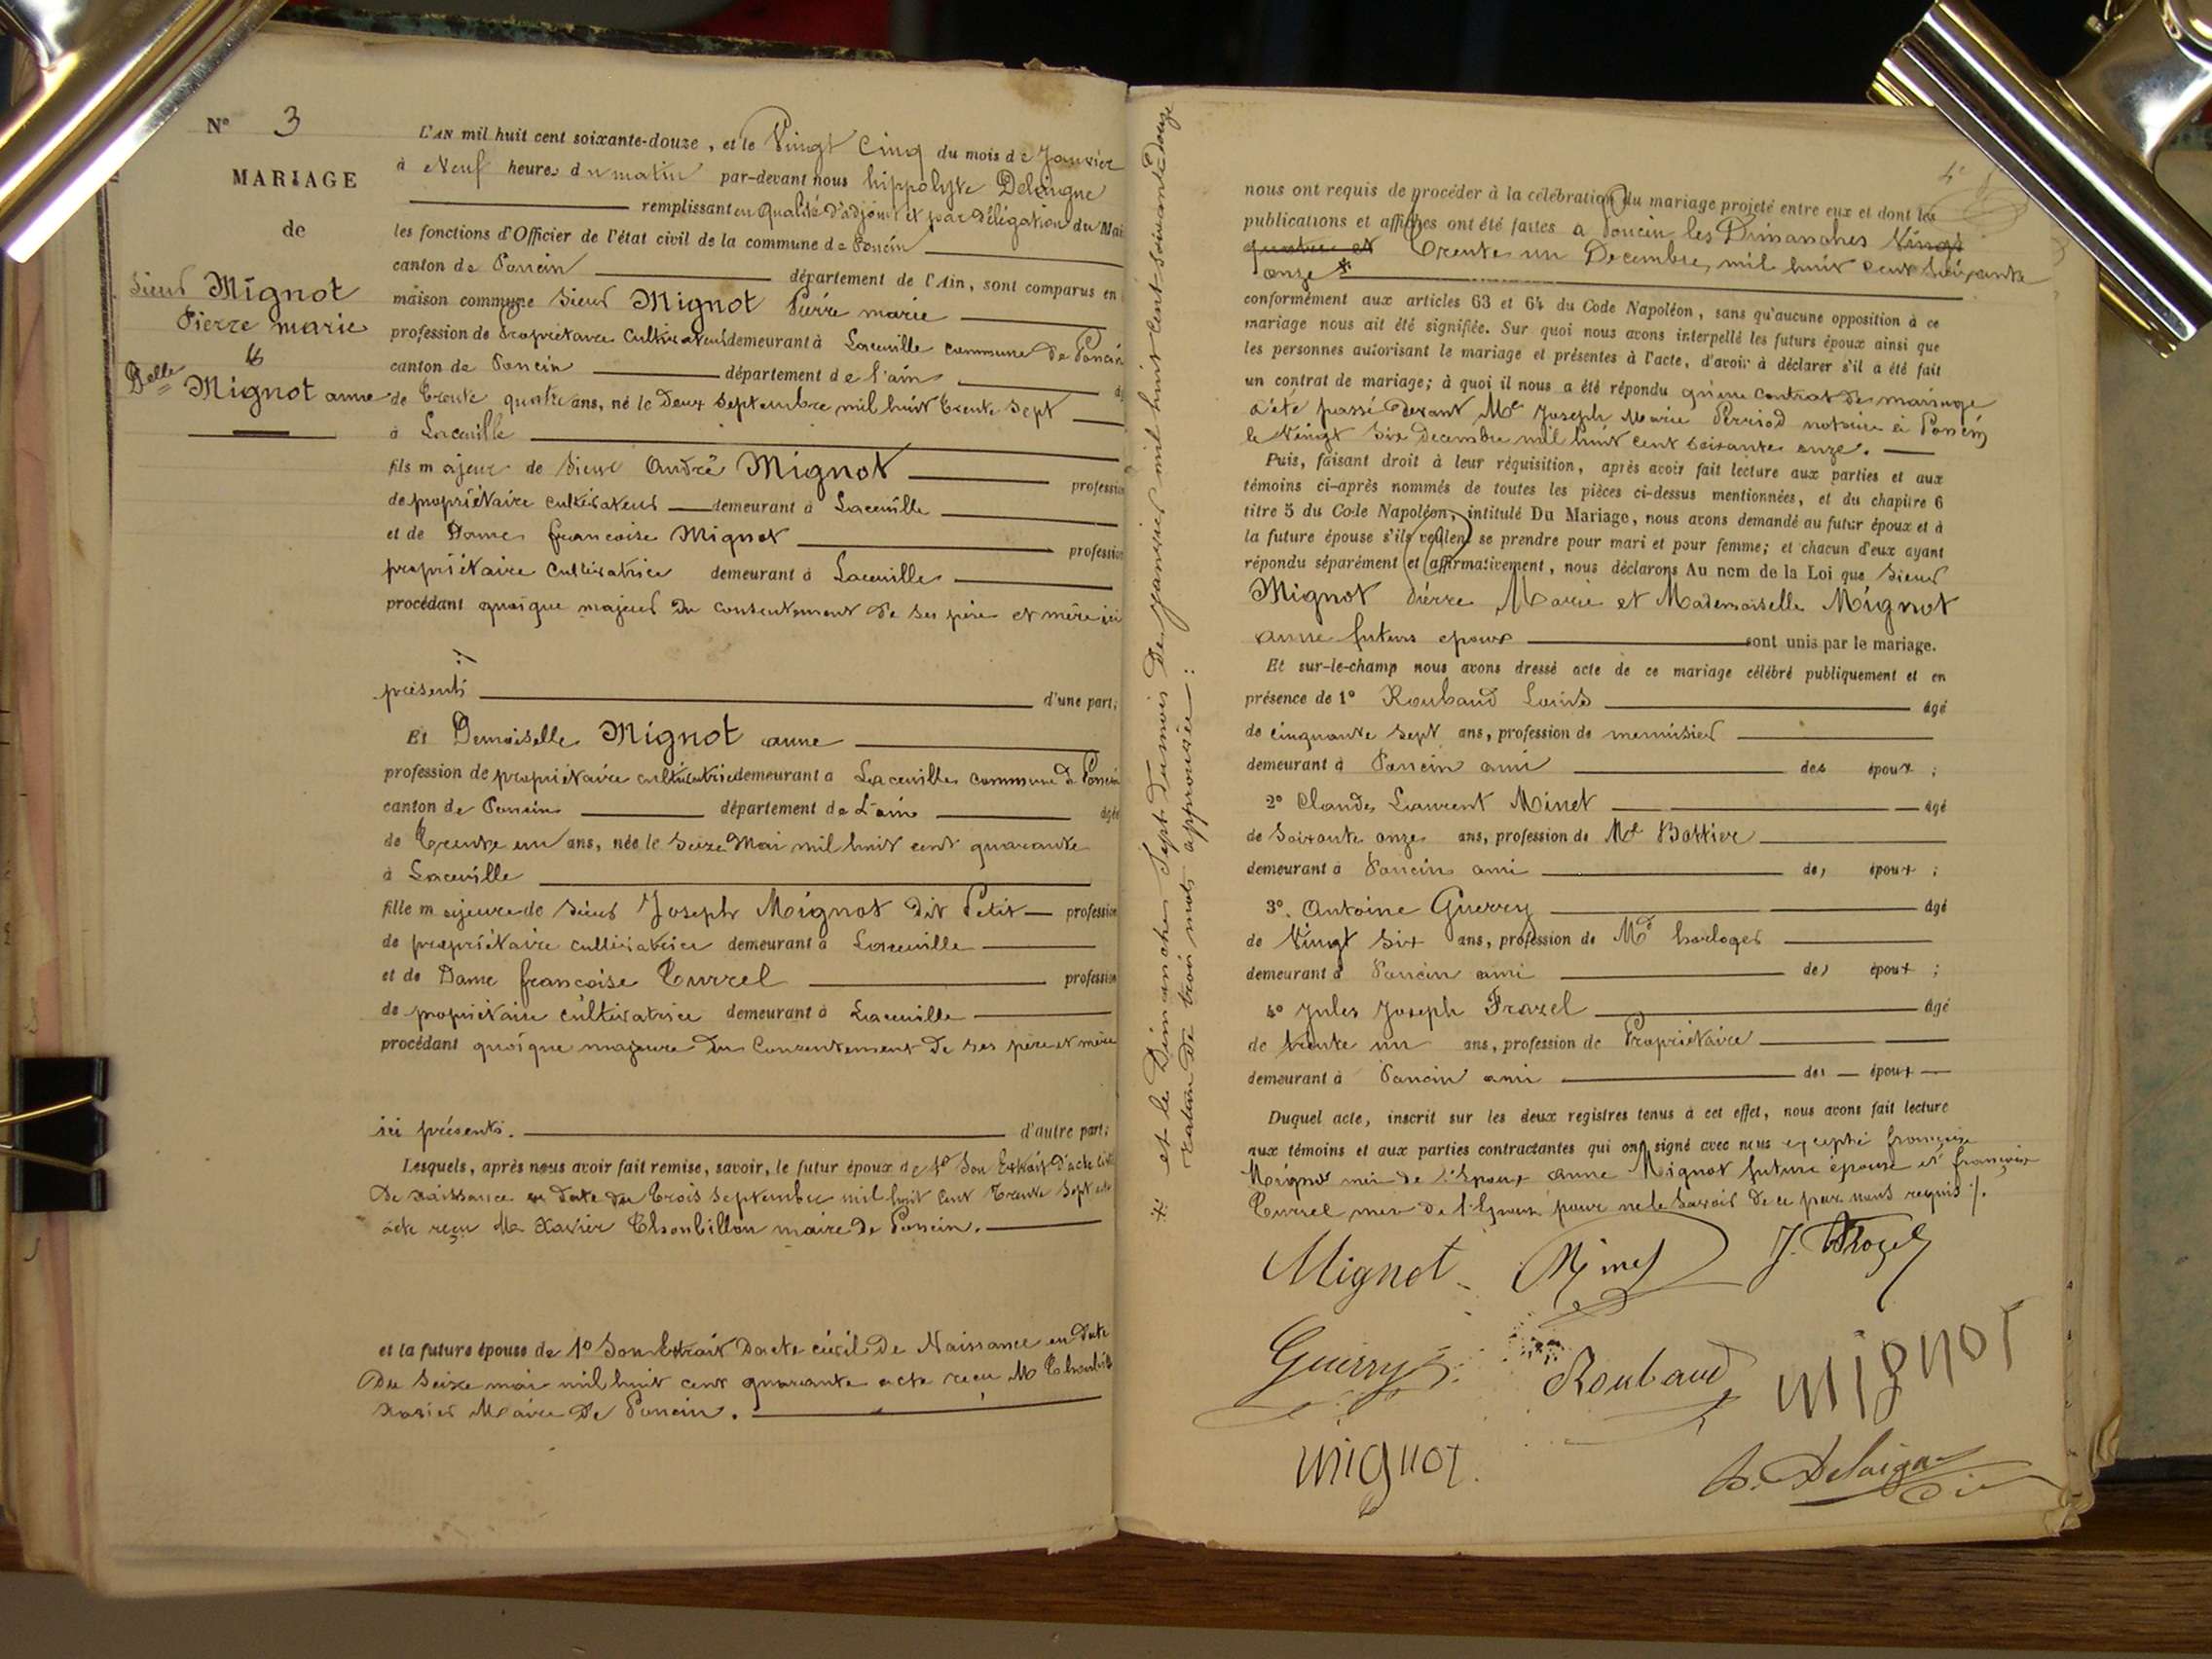 N° 3
MARIAGE
de
Sieur Mignot
Pierre marie
&
Delle Mignot anne
L'AN mil huit cent soixante-douze, et le Vingt Cinq du mois de Janvier
à Neuf heures du matin par-devant nous hippolyte Delaigue
remplissant en qualité d'adjoint et par délégation du Mai
les fonctions d'Officier de l'état civil de la commune de Poncin
canton de Poncin département de l'Ain, sont comparus en
maison commune Sieur Mignot Pierre marie
profession de Propriétaire Cultivateur demeurant à Lacuille commune de Poncin
canton de Poncin département de l'ain
de Trente quatre ans, né le Deux Septembre mil huit Trente Sept
à Lacuille
fils majeur de Sieur André Mignot profession
de propriétaire cultivateur demeurant à Lacuille
et de Dame francoise Mignot profession
propriétaire Cultivatrice demeurant à Lacuille
procédant quoique majeur du consentement de ses père et mère ici
présents d'une part;
Et Demoiselle Mignot anne
profession de propriétaire cultivatrice demeurant à Lacuille commune de Poncin
canton de Poncin département de L'ain âgée
de Trente un ans, née le Seize Mai mil huit cent quarante
à Lacuille
fille majeure de Sieur Joseph Mignot dit Petit profession
de propriétaire cultivatrice demeurant à Lacuille
et de Dame francoise Turrel profession
de propriétaire cultivatrice demeurant à Lacuille
procédant quoique majeure du Consentement de ses père et mère
ici présents. d'autre part;
Lesquels, après nous avoir fait remise, savoir, le futur époux de 1° Son Extrait d'acte civil
De naissance en date du Trois Septembre mil huit cent Trente Sept
acte reçu Mr Xavier Thoubillon maire de Poncin.
et la future épouse de 1° Son Extrait Dacte civil De Naissance en date
Du Seize mai mil huit cent quarante acte reçu Mr
Xavier Maire De Poncin.
+: et le Dimanche Sept du mois De janvier mil huit cent soixante douze
rature de trois mots approuvée :
nous ont requis de procéder à la célébration du mariage projeté entre eux et dont les
publications et affiches ont été faites à Poncin les Dimanches Vingt
quatre et Trente un Decembre mil huit cent Soixante
onze +
conformément aux articles 63 et 64 du Code Napoléon, sans qu'aucune opposition à ce
mariage nous ait été signifiée. Sur quoi nous avons interpellé les futurs époux ainsi que
les personnes autorisant le mariage et présentes à l'acte, d'avoir à déclarer s'il a été fait
un contrat de mariage; à quoi il nous a été répondu qu'un contrat de mariage
a été passé devant Me Joseph Marie Perriod notaire à Poncin
le Vingt Six Decembre mil huit cent soixante onze.
Puis, faisant droit à leur réquisition, après avoir fait lecture aux parties et aux
témoins ci-après nommés de toutes les pièces ci-dessus mentionnées, et du chapitre 6
titre 5 du Code Napoléon, intitulé Du Mariage, nous avons demandé au futur époux et à
la future épouse s'ils veulent se prendre pour mari et pour femme; et chacun d'eux ayant
répondu séparément et affirmativement, nous déclarons Au nom de la Loi que Sieur
Mignot Pierre Marie et Mademoiselle Mignot
anne futurs epoux sont unis par le mariage.
Et sur-le-champ nous avons dressé acte de ce mariage célébré publiquement et en
présence de 1° Roubaud Louis âgé
de cinquante Sept ans, profession de menuisier
demeurant à Poncin ami des époux ;
2° Claude Laurent Minet âgé
de Soixante onze ans, profession de Md Bottier
demeurant à Poncin ami des époux ;
3°. Antoine Guerry âgé
de Vingt Six ans, profession de Md horloger
demeurant à Poncin ami des époux ;
4° Jules Joseph Frazel âgé
de trente un ans, profession de Propriétaire
demeurant à Poncin ami des époux
Duquel acte, inscrit sur les deux registres tenus à cet effet, nous avons fait lecture
aux témoins et aux parties contractantes qui ont signé avec nous excepté françoise
Mignot mère de l'Epoux anne Mignot future épouse et françoise
Turrel mère de l'Epouse pour ne le Savoir de ce par nous requis ./.
Mignot Minet
Guerry Roubaud mignot
mignot. h. Delaigue